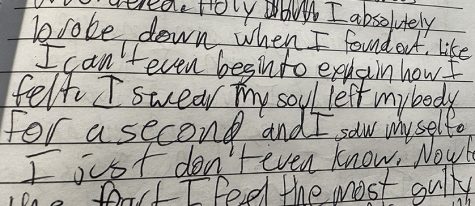 Holy I absolutely
broke down when I found out. Like
I can't even begin to explain how I
felt. I swear my soul left my body
for a second and I saw myself.
I just don't even know. Now
fact I feel the most guilt